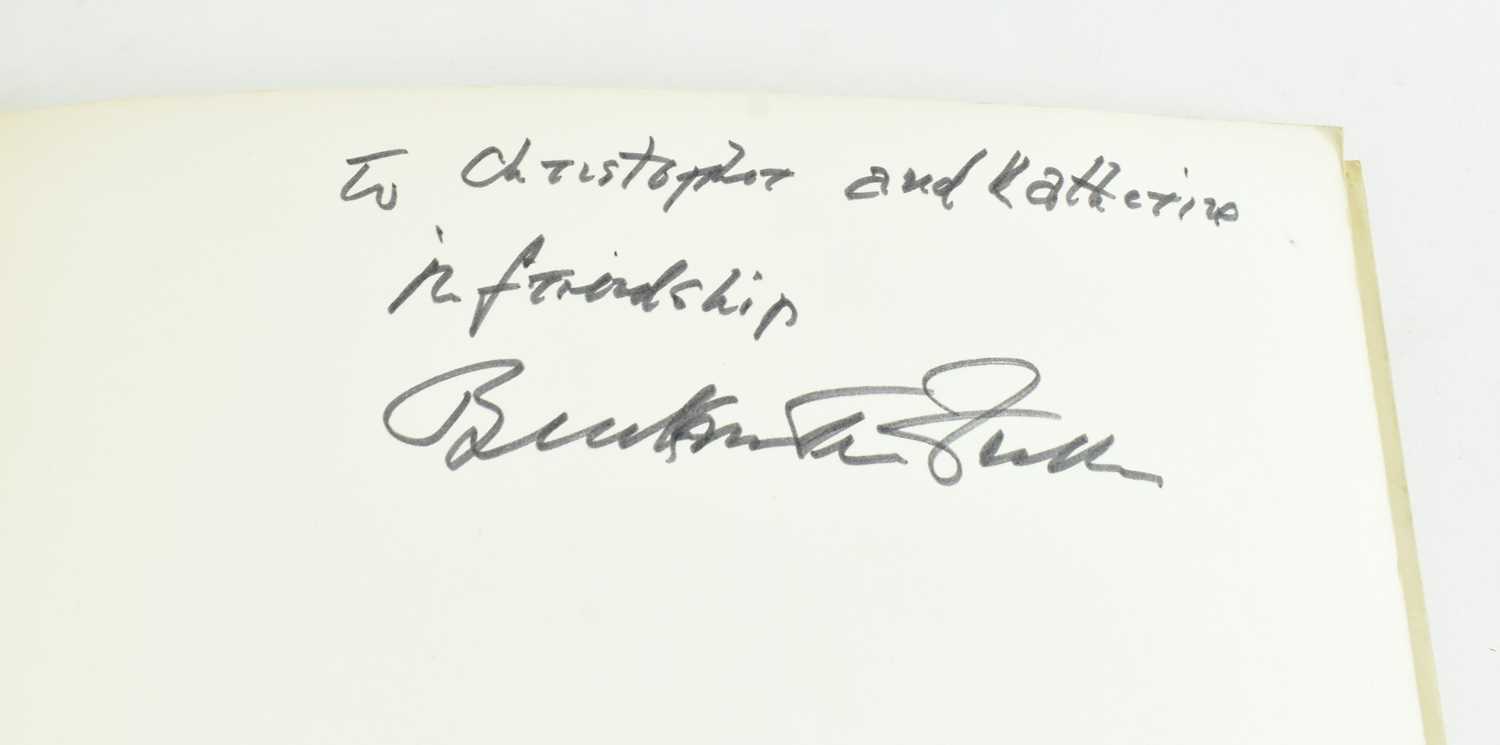 To Christopher and Katherine
in friendship
Buckminster Fuller